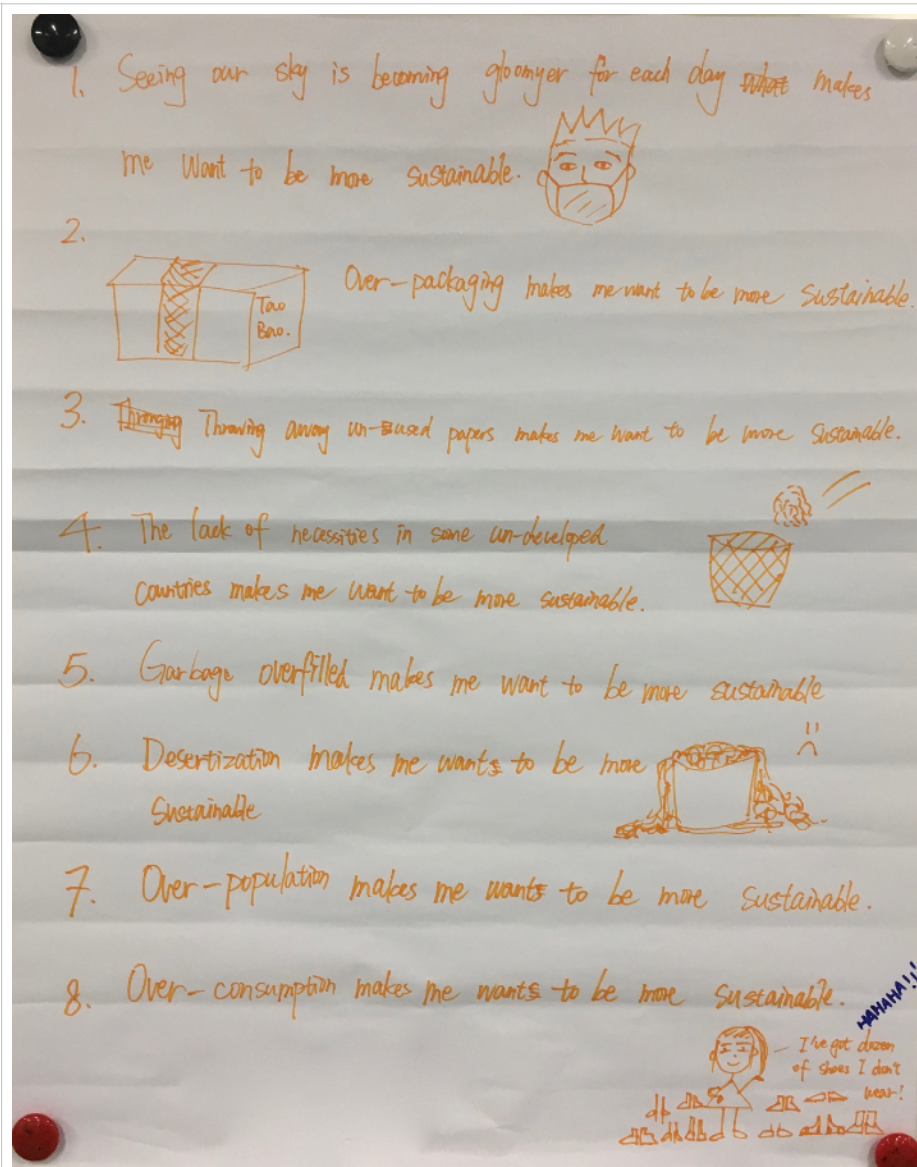 1. Seeing our sky is becoming gloomyer for each day makes
me want to be more sustainable.
2.
Tao
Bao.
Over-packaging makes me want to be more sustainable.
3. Throwing away un-used papers makes me want to be more sustainable.
4. The lack of necessities in some un-developed
countries makes me want to be more sustainable.
5. Garbage overfilled makes me want to be more sustainable
6. Desertization makes me want to be more
sustainable
7. Over-population makes me want to be more sustainable.
8. Over-consumption makes me want to be more sustainable.
HAHAHA!!
I've got dozen
of shoes I don't
wear!